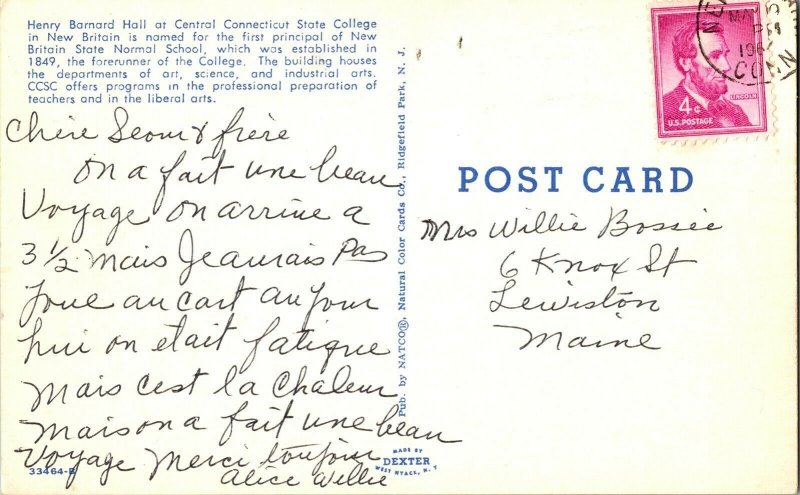 Henry Barnard Hall at Central Connecticut State College
in New Britain is named for the first principal of New
Britain State Normal School, which was established in
1849, the forerunner of the College. The building houses
the departments of art, science, and industrial arts.
CCSC offers programs in the professional preparation of
teachers and in the liberal arts.
Chère Seour & frère
on a fait une beau
Voyage on arrive a
3 1/2 mais Jeaurais Pas
Joue au cart au Jour
hui on etait fatigue
Mais cest la Chaleur
Mais on a fait une beau
Voyage Merci toujour
Alice Willie
33464-B
Pub. by NATCO®, Natural Color Cards Co., Ridgefield Park, N. J.
MADE BY
DEXTER
WEST NYACK, N. Y.
4¢
LINCOLN
U.S. POSTAGE
PM
CONN
POST CARD
Mrs Willie Bossie
6 Knox St
Lewiston
Maine